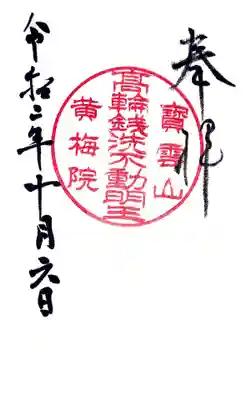 奉拝
寶雲山
高輪銭洗不動明王
黄梅院
令和二年十月六日